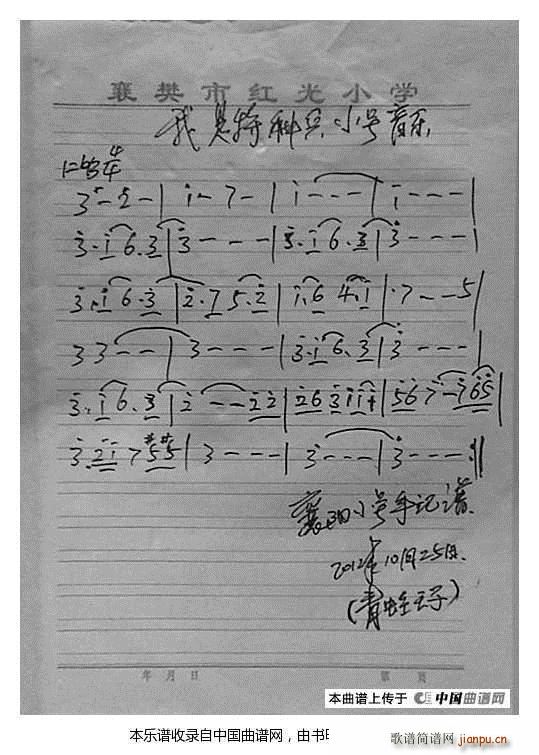 襄樊市红光小学
我是特科兵小号音乐
1=♭B 4/4
3 - 2 - | i - 7 - | i - - - | i - - - |
3·i 6·3 | 3 - - - | 3·i 6·3 | 3 - - - |
3·i 6·3 | 2·7 5·2 | i·6 4·i | ·7 - - 5 |
3 3 - - | 3 - - - | 3·i 6·3 | 3 - - - |
3·i 6·3 | 2 - - 2 2 | 2 6 3 i i i | 5 6 7 - 7 6 5 |
3·2 i 7 #5 #5 | 3 - - - | 3 - - - | 3 - - - :||
襄阳小号手记谱
2012年10月25日.
(青蛙王子)
年 月 日 第 页
本曲谱上传于 中国曲谱网
本乐谱收录自中国曲谱网，由书
歌谱简谱网
jianpu.cn